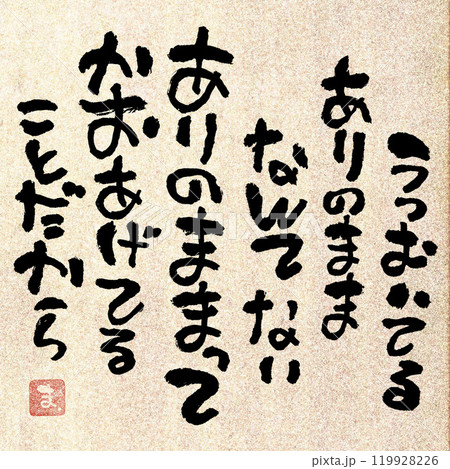 うつむいてる
ありのまま
なんてない
ありのままって
かおあげてる
ことだから
ま
119928226